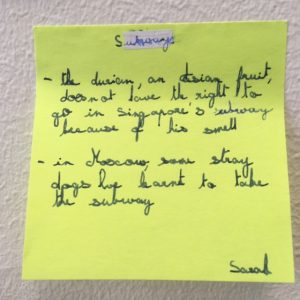 Subways
- the durian, an Asian fruit,
does not have the right to
go in Singapore's subway
because of his smell
- in Moscow, some stray
dogs have learnt to take
the subway
Sarah